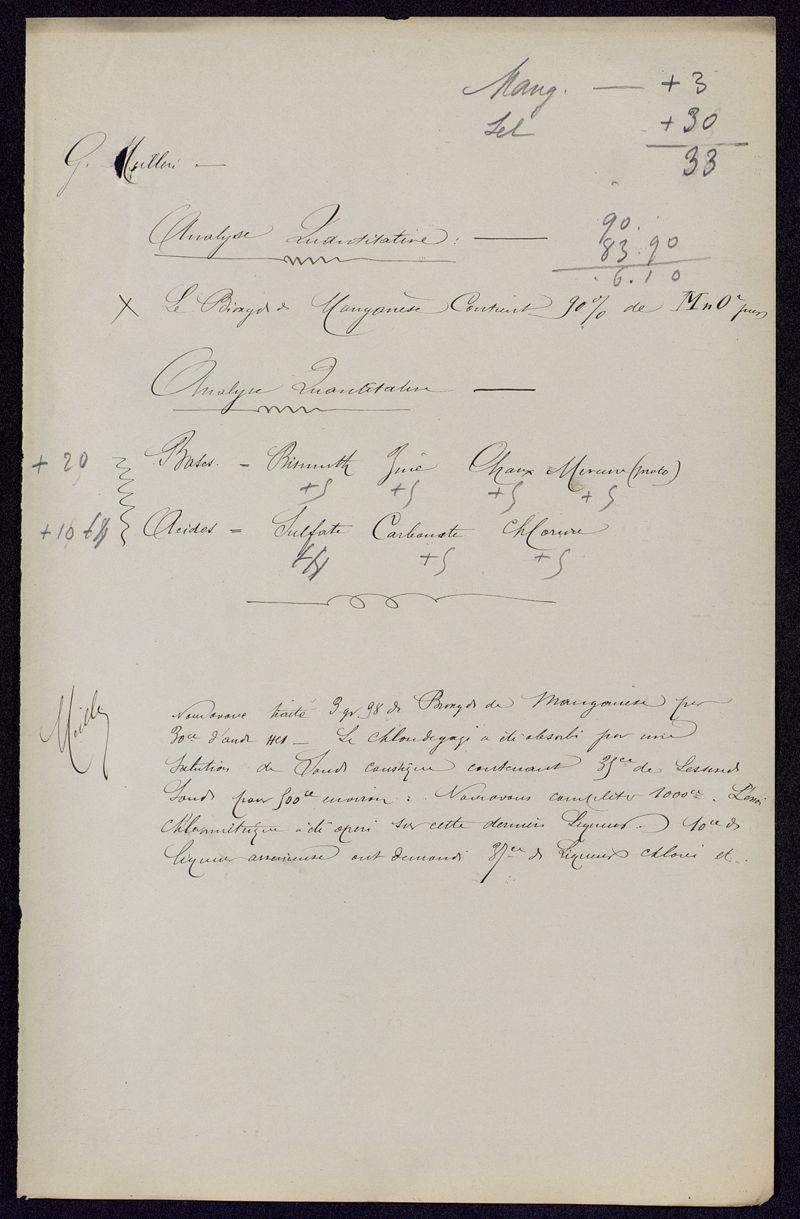 Mang. — +3
Sel +30
33
G. —
Analyse Quantitative : — 90.
83.90
6.10
X Le Bioxyde Manganèse Contient 90% de MnO² pur
Analyse Quantitative —
+ 20 Bases. = Bismuth Zinc Chaux Mercure (proto)
+5 +5 +5 +5
+10 Acides = Sulfate Carbonate Chlorure
+5 +5
Nous avons traité 3gr,98 de Bioxyde de Manganèse par
30cc d'acide HCl — Le chlore dégagé a été absorbé par une
Solution de Soude caustique contenant 35cc de Lessive de
Soude pour 500cc environ : Nous avons compléter 1000cc. L'essai
Chlorométrique a été opéré sur cette dernière Liqueur. 10cc de
liqueur arsenieuse ont demandé de Liqueur chlorée et